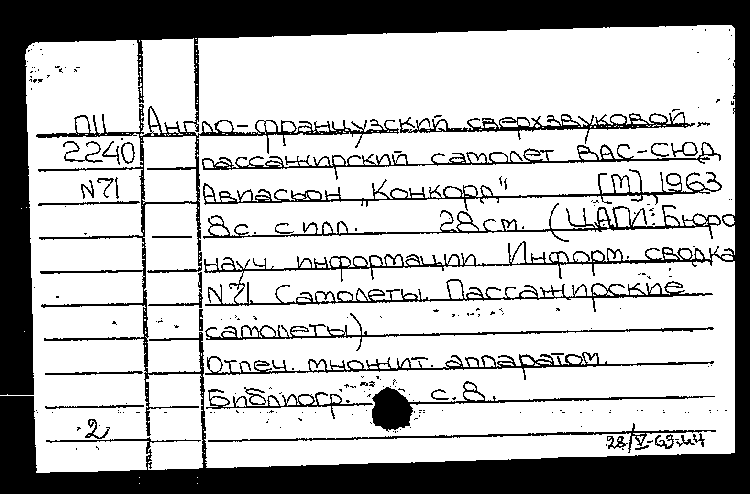 П11 Англо-французский сверхзвуковой
2240 пассажирский самолет ВАС-СЮД
N71 Авиасьон „Конкорд" [М], 1963
8с. с илл. 28 ст. (ЦАГИ. Бюро
науч. информации. Информ. сводка
N71. Самолеты. Пассажирские
самолеты).
Отпеч. множит. аппаратом.
Библиогр. с. 8.
2
28/V-63